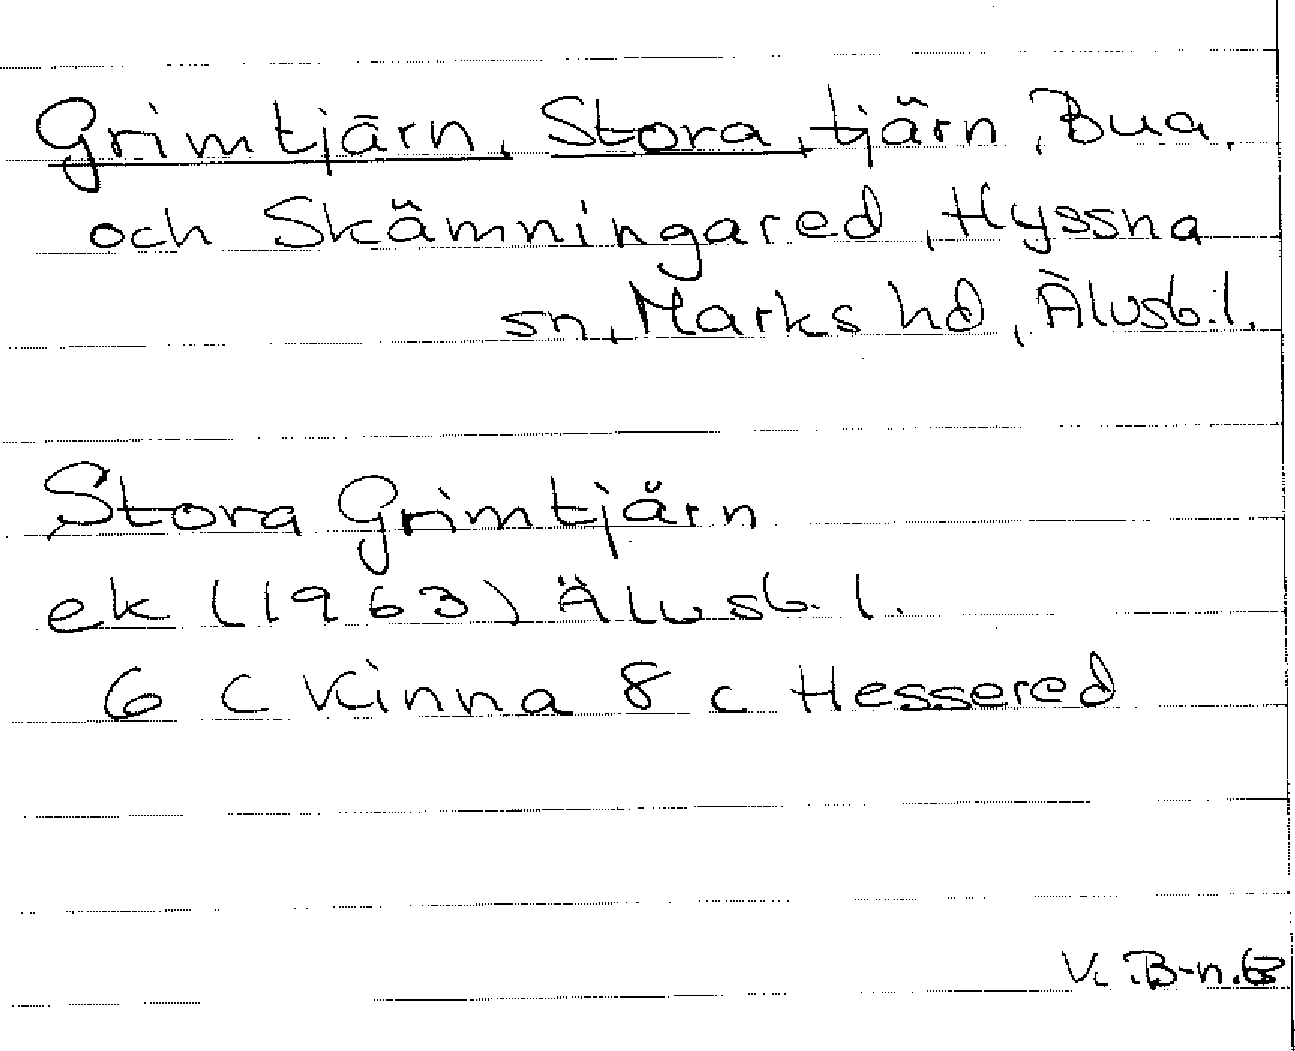 Grimtjärn, Stora, tjärn, Bua.
och Skämningared, Hyssna
sn, Marks hd, Älvsb.l.
Stora Grimtjärn
ek (1963) Älvsb.l.
6 C Kinna 8 c Hessered
V. B-n.